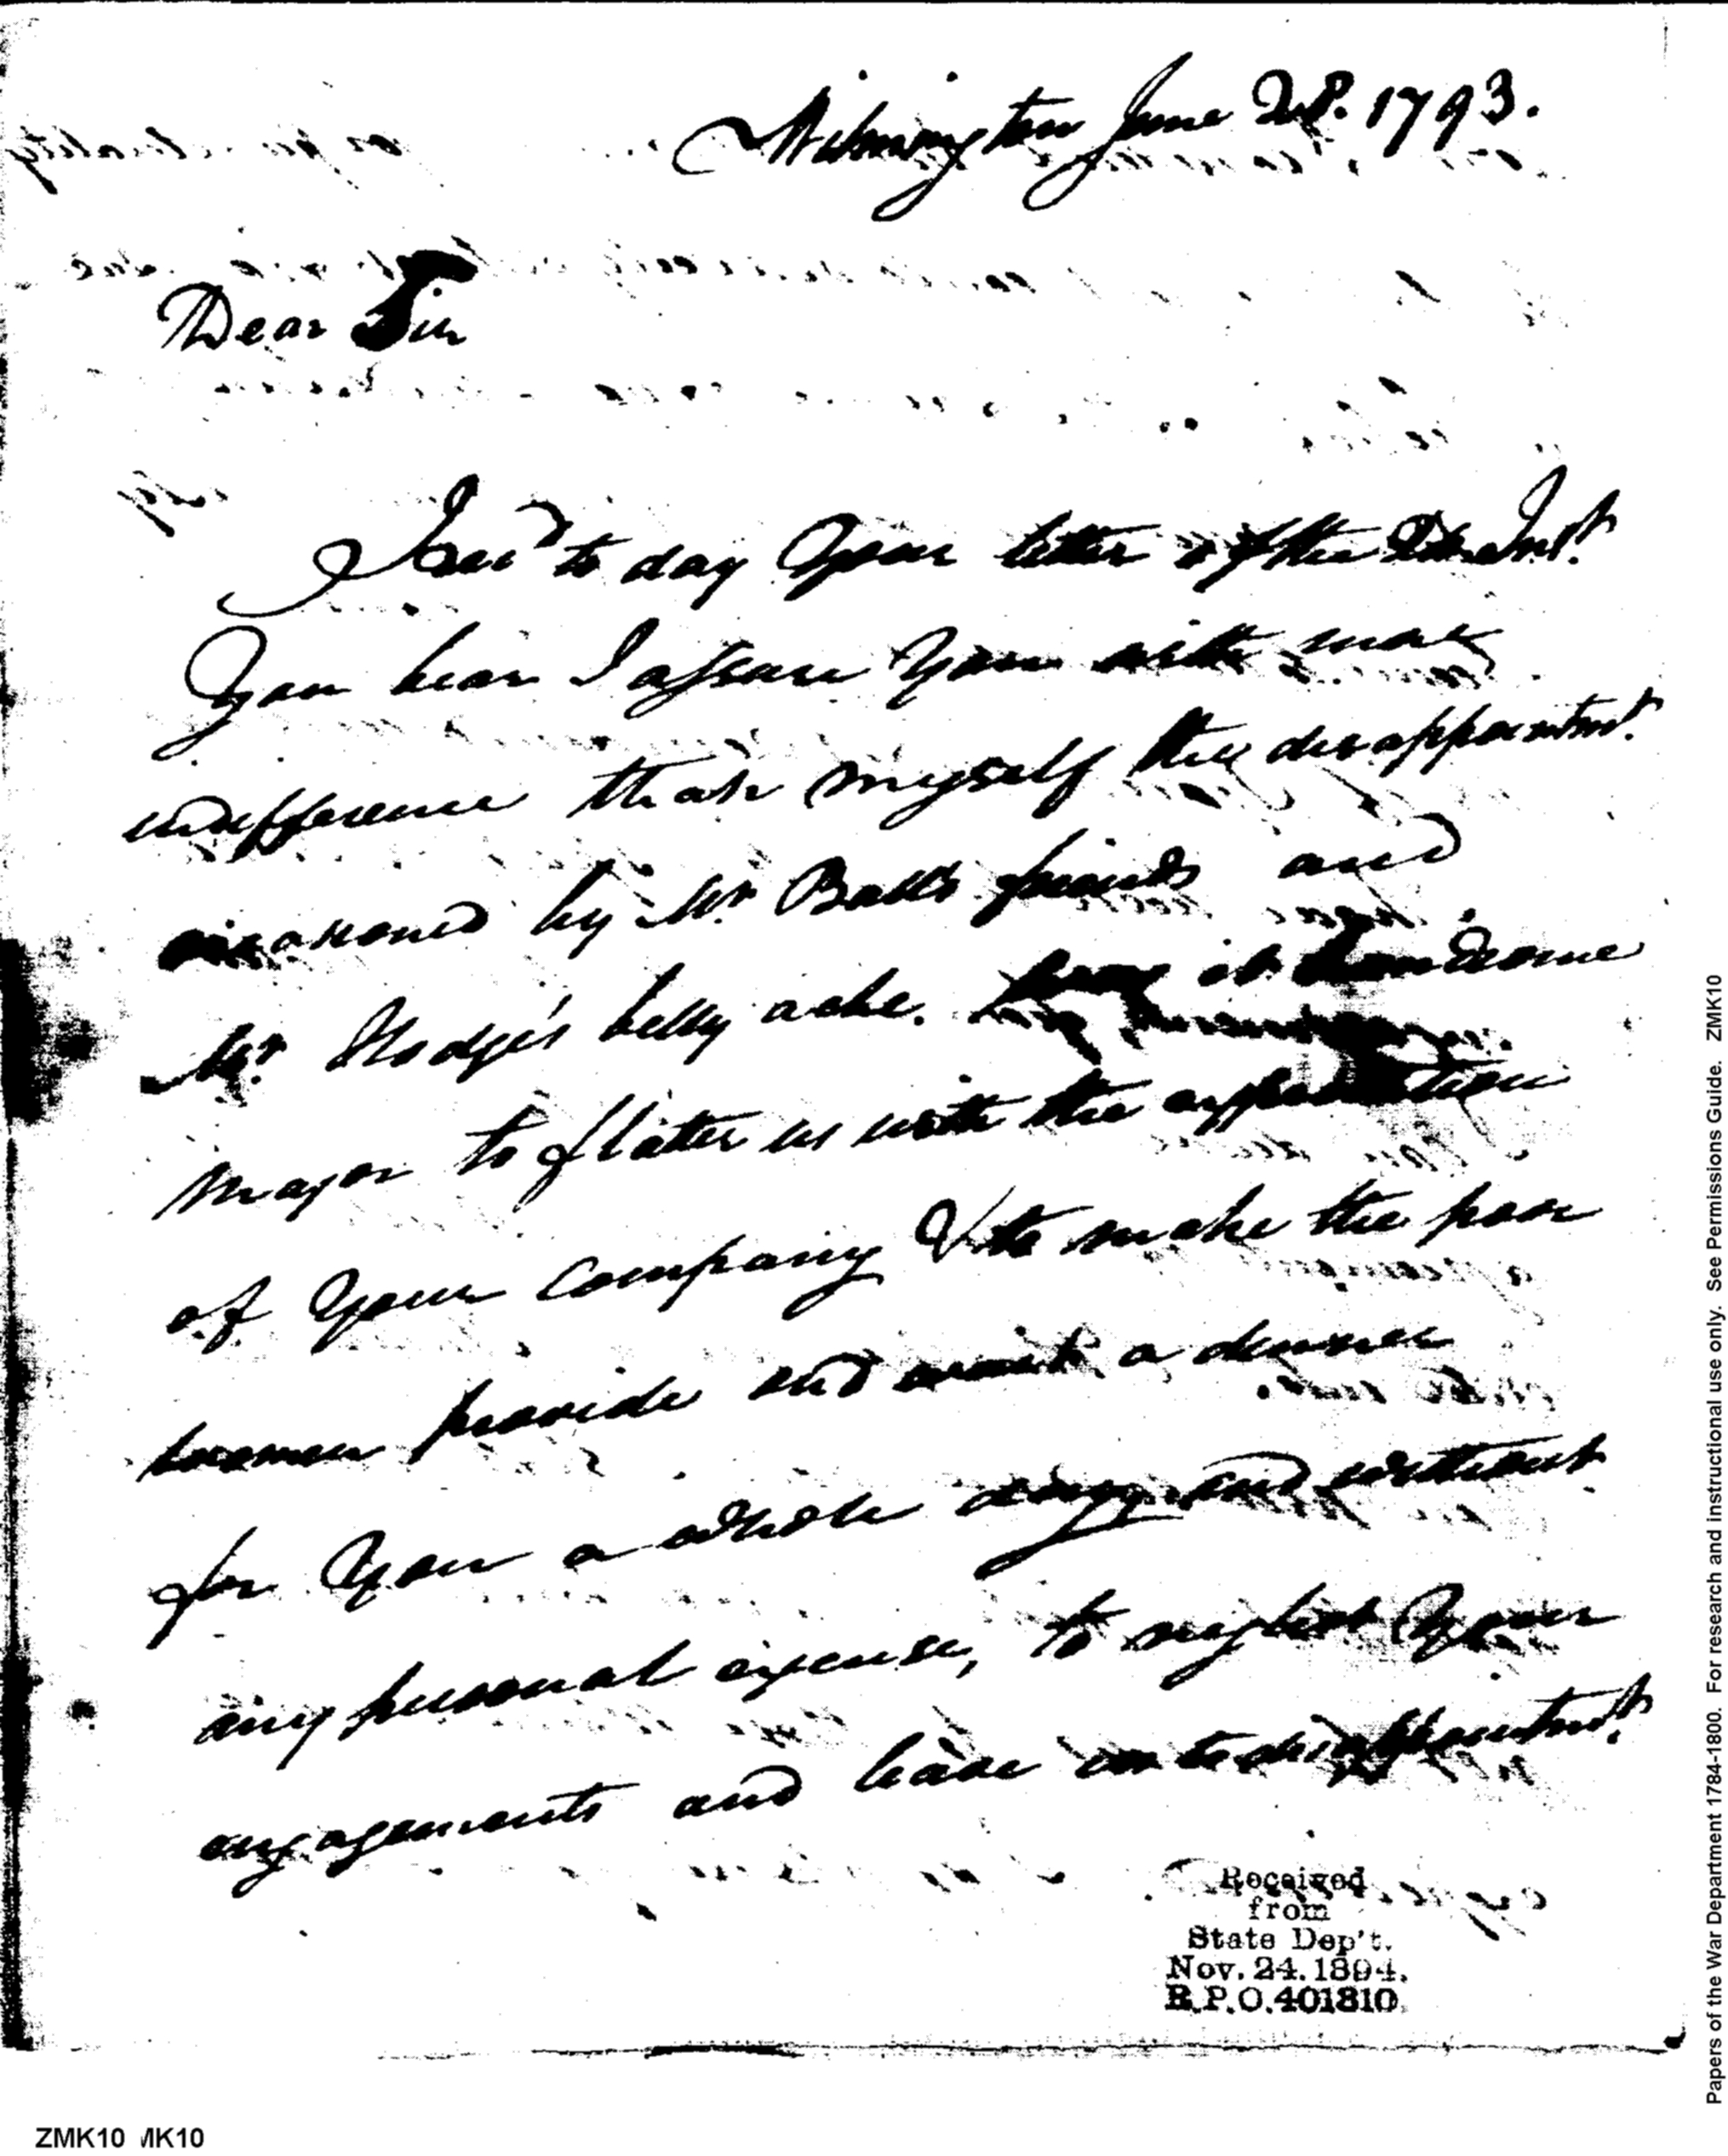 Wilmington June 28. 1793.
Dear Sir
I rec'd to day Your letter of the Inst.
You bear I assure You with more
indifference than myself the disappointmt.
occasioned by Mr. Balls friends and
Mr. Hodge's belly ache. was it handsome
Major to flatter us with the expectation
of Your Company & to make the poor
women provide and wait a dinner
for You a whole day and without
any personal excuse, to neglect Your
engagements and leave us to disappointmt.
Received
from
State Dep't.
Nov. 24. 1894.
R.P.O. 401810
Papers of the War Department 1784-1800. For research and instructional use only. See Permissions Guide. ZMK10
ZMK10 MK10